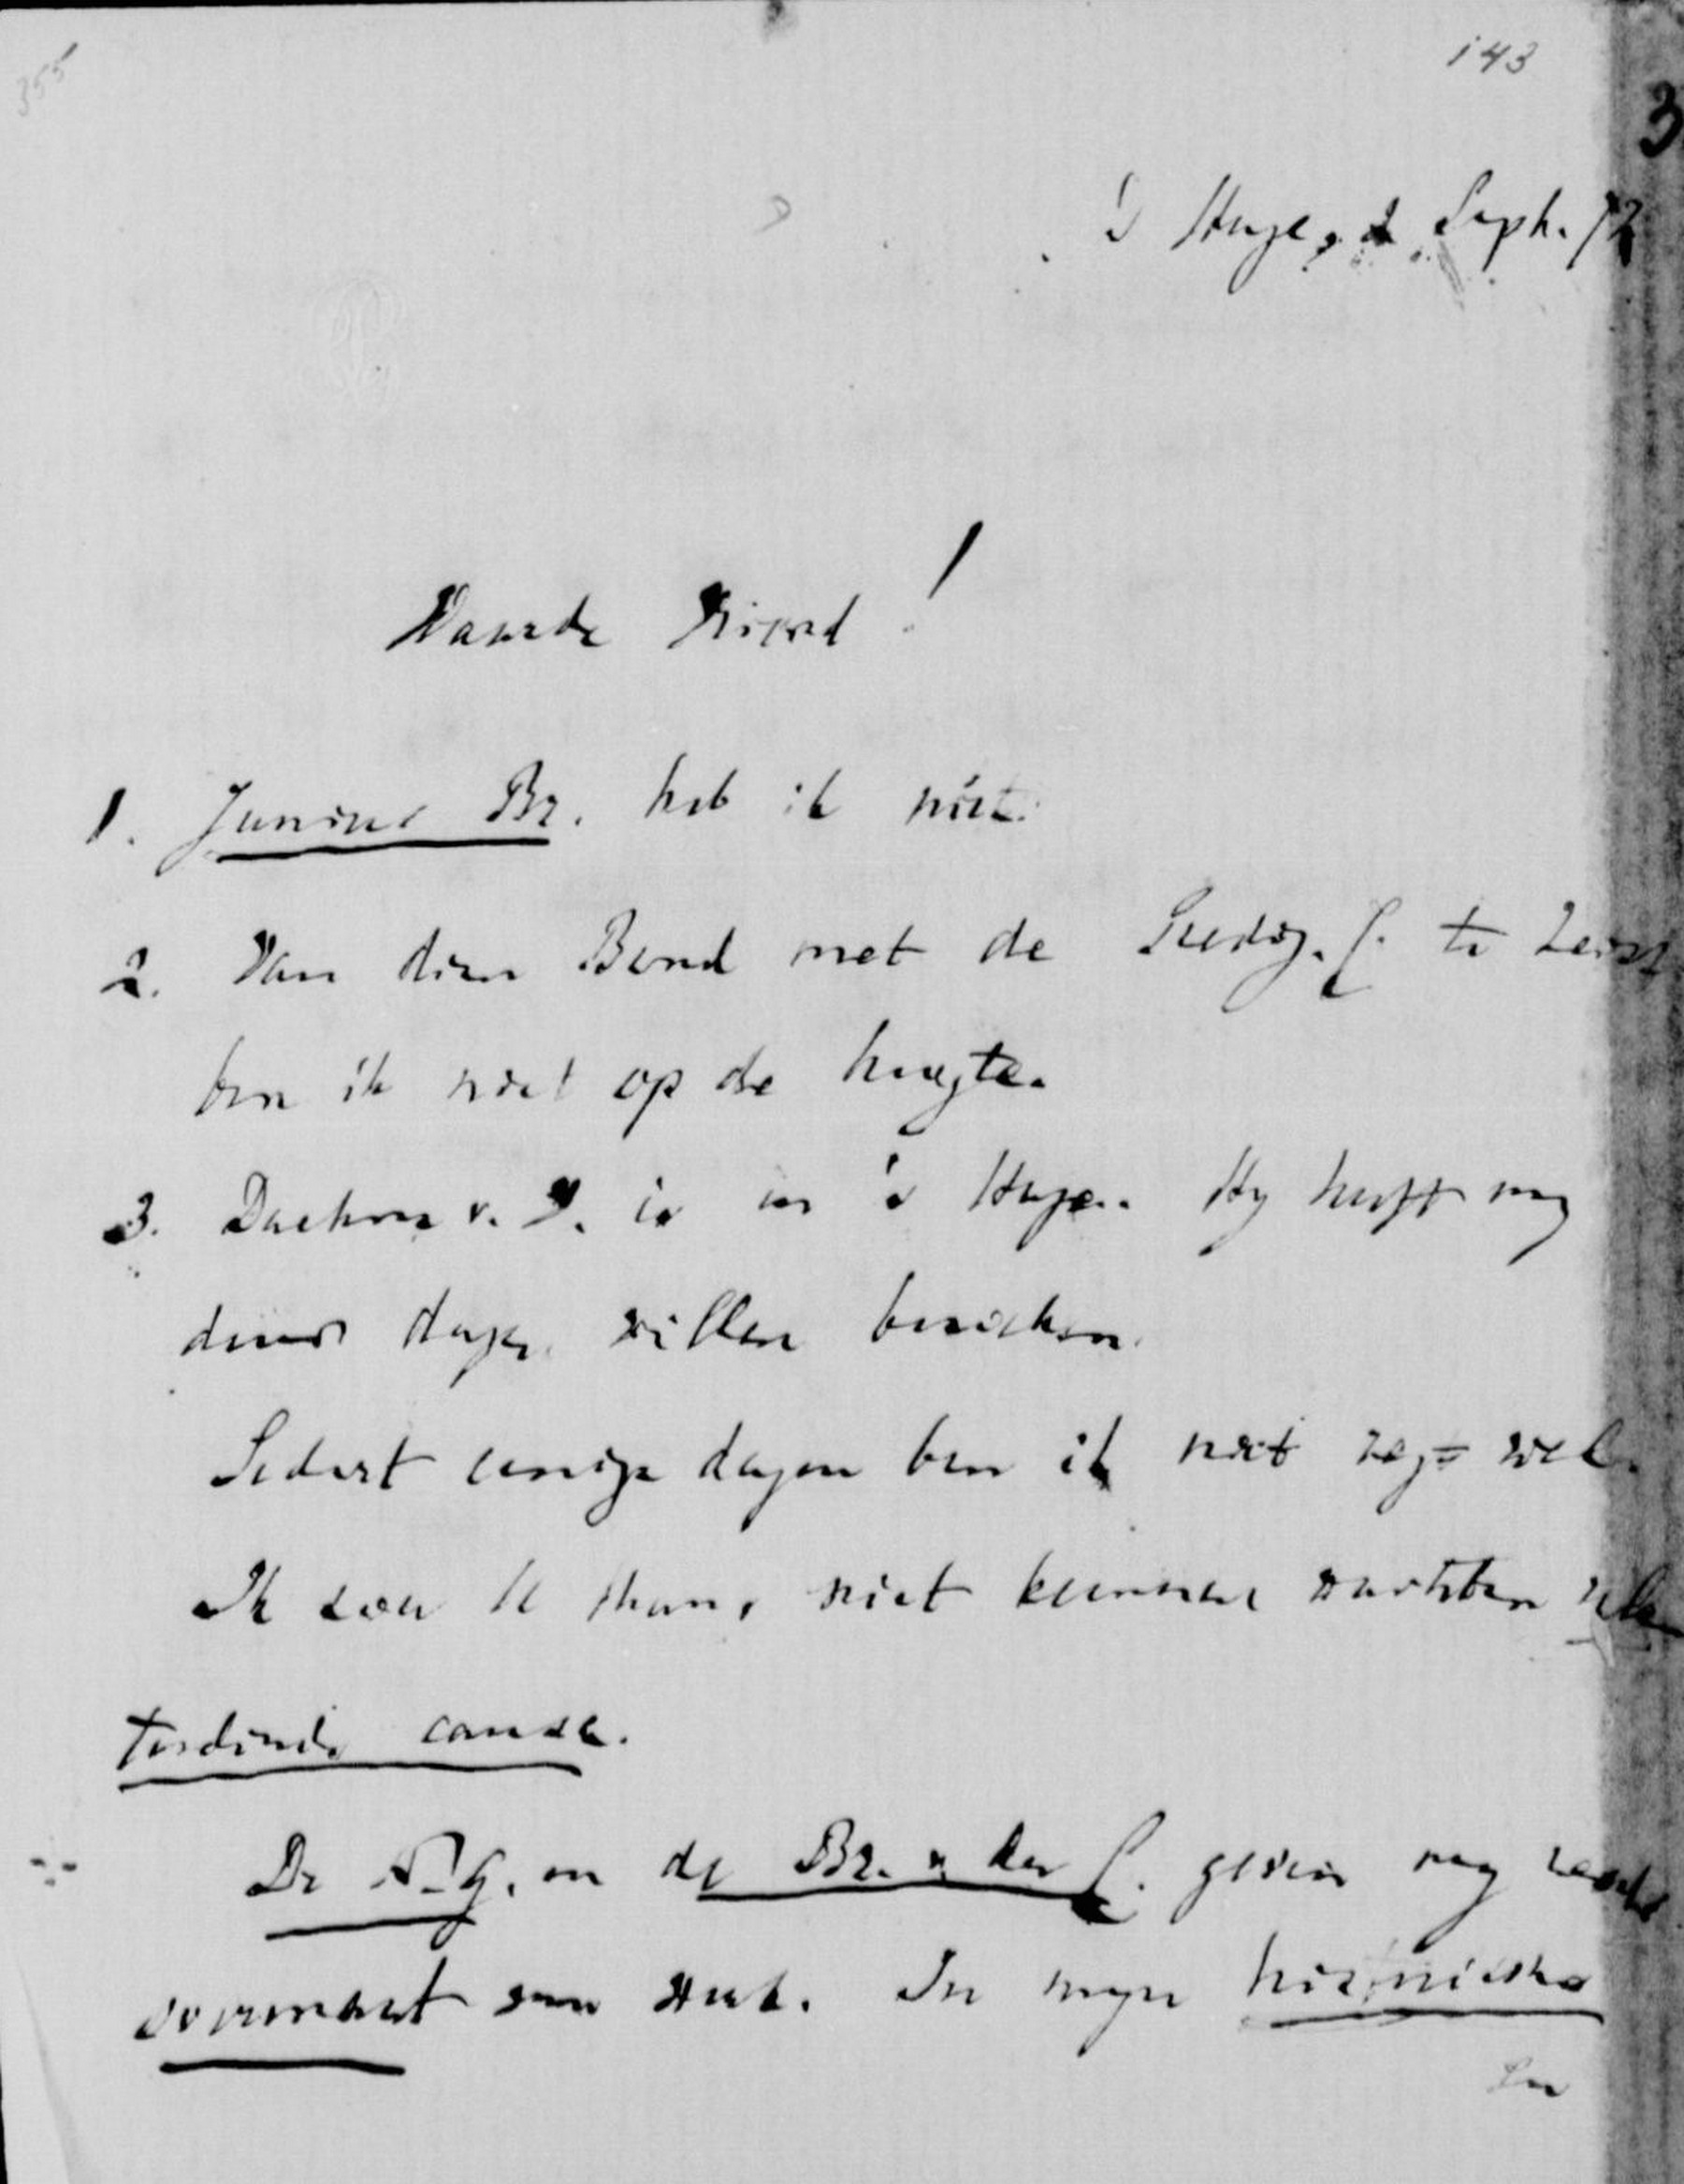 355
143
3
's Hage, 2 Sept. 72
Waarde Vriend!
1. Junius Br. heb ik niet.
2. Van dien Bond met de te Zeist
ben ik niet op de hoogte.
3. v. D. is in 's Hage. Hy heeft my
dezer dagen willen bezoeken.
Sedert eenige dagen ben ik niet regt wel.
Ik zou U thans niet kunnen
causa.
De N.G. en de Br. v. der C. geven my
overmaat van stof. In myn